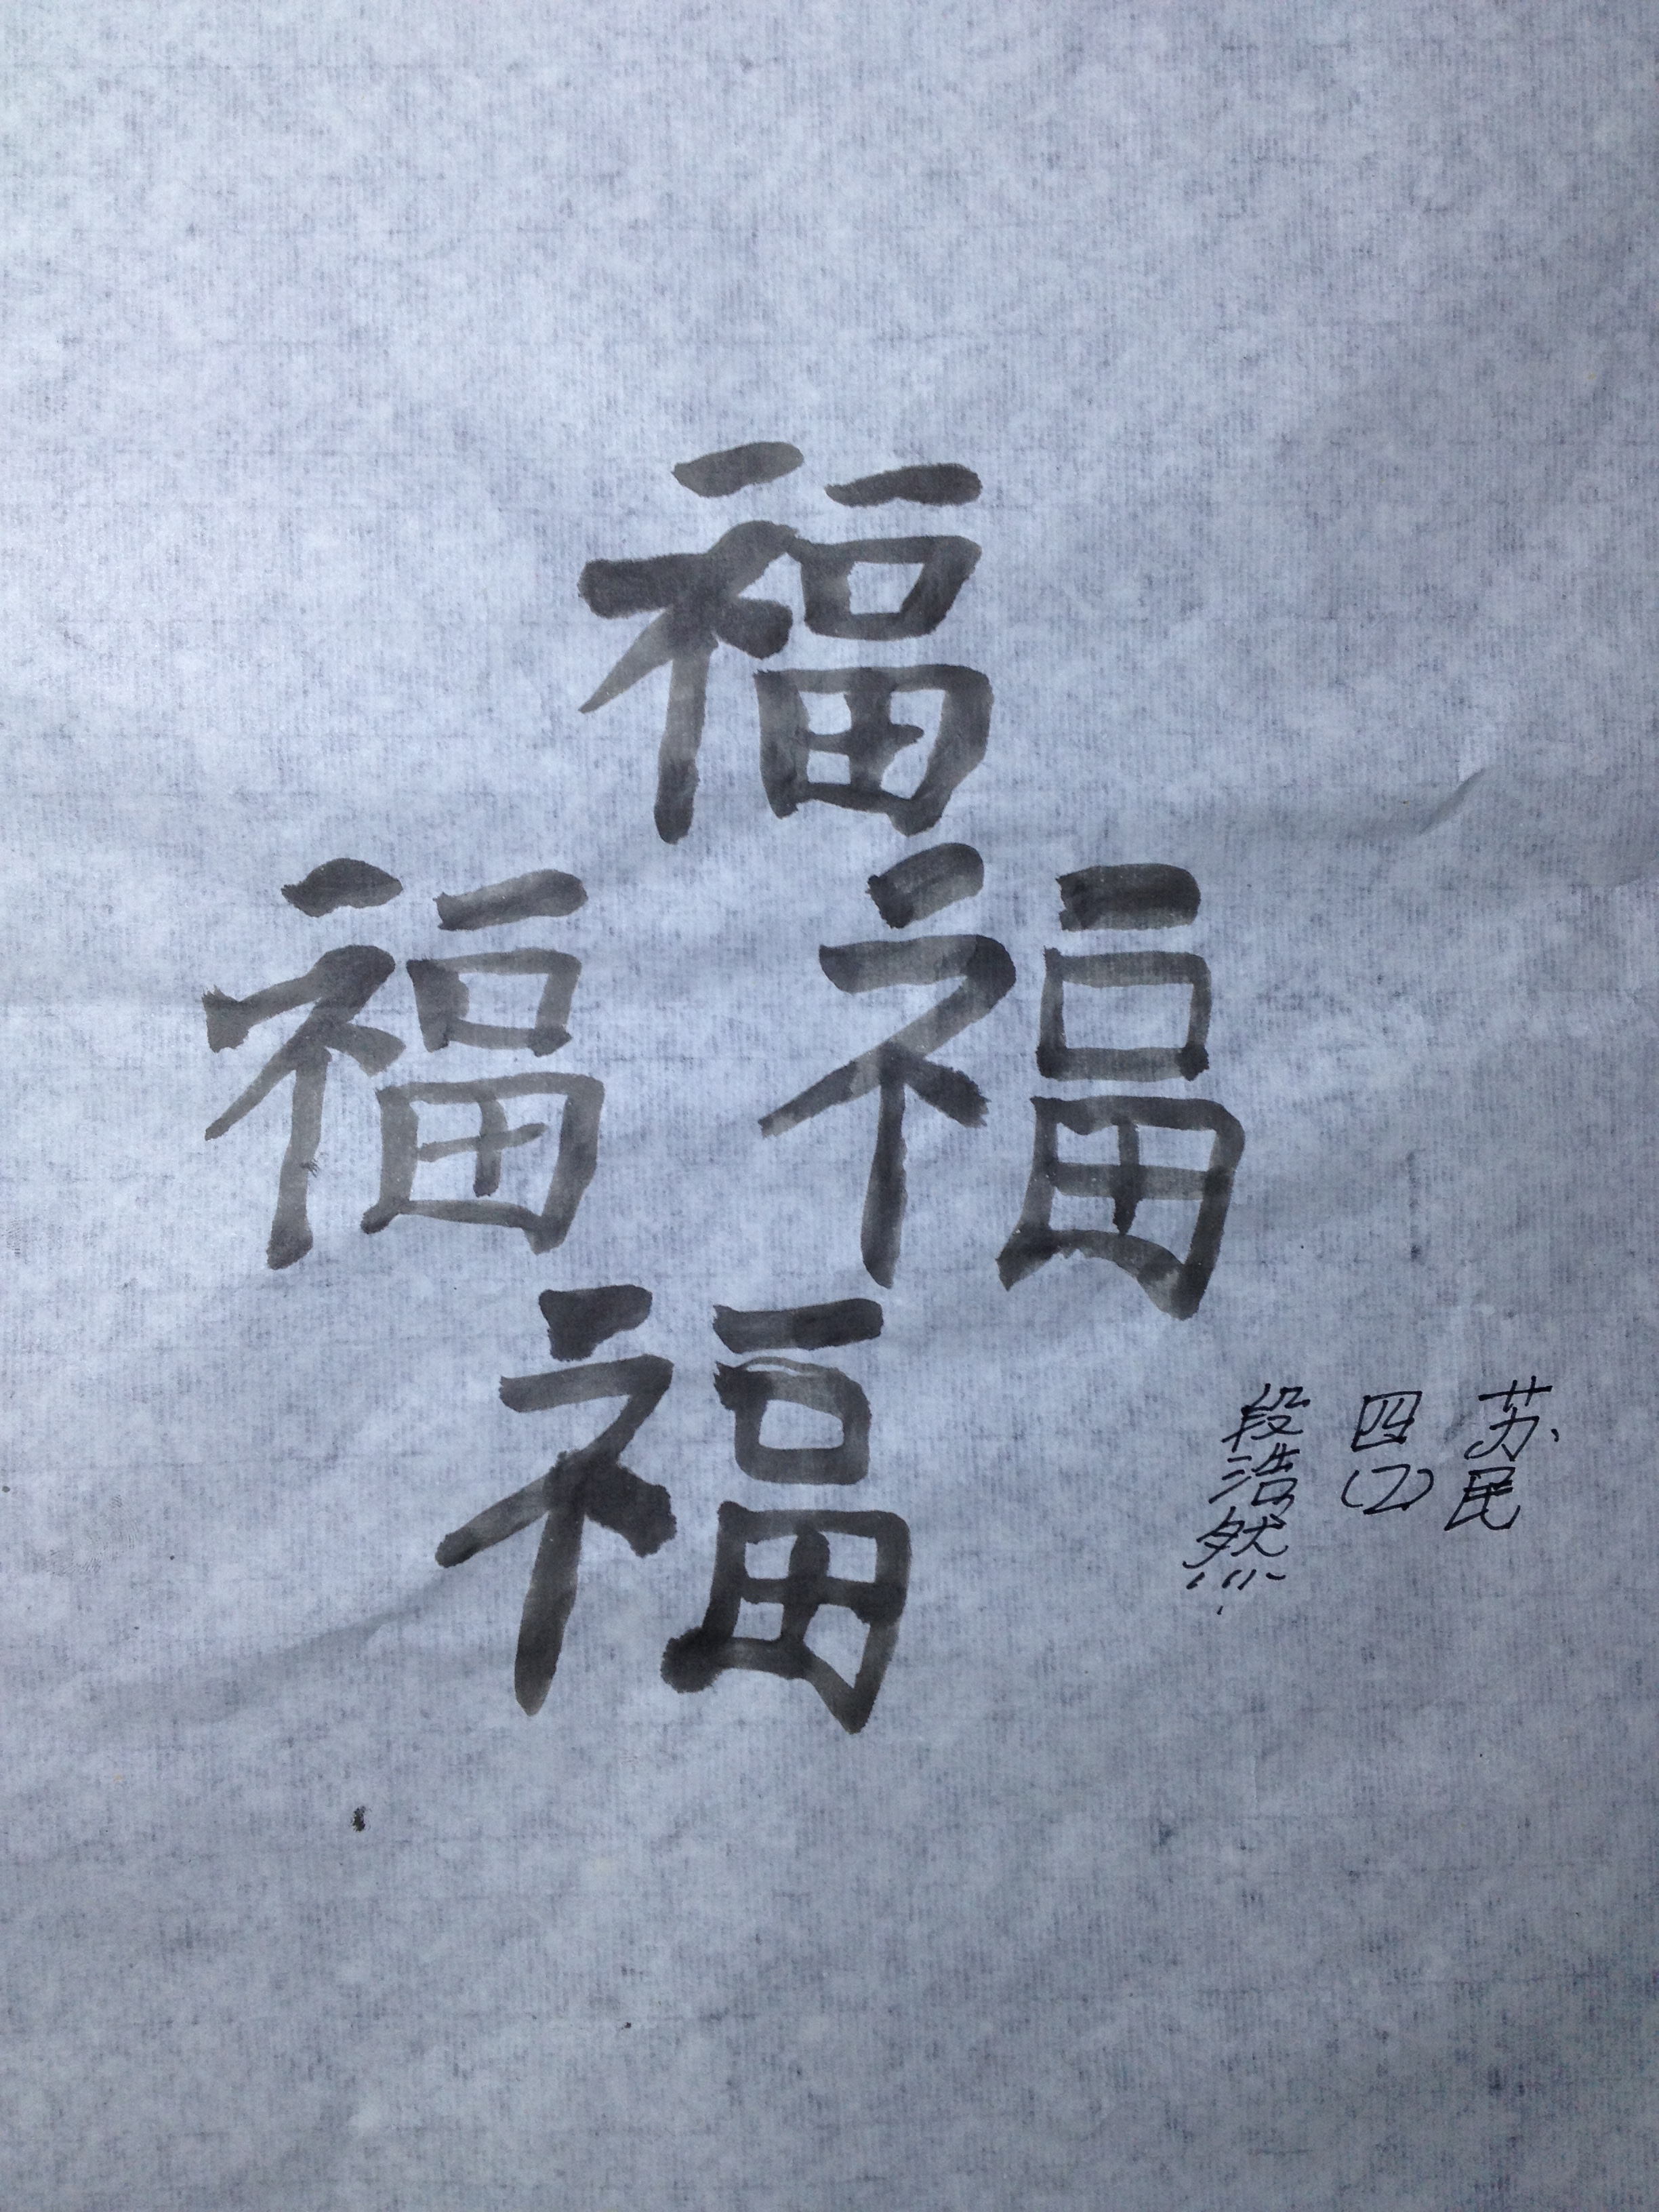 福
福 福
福
苏民
四(2)
段浩然